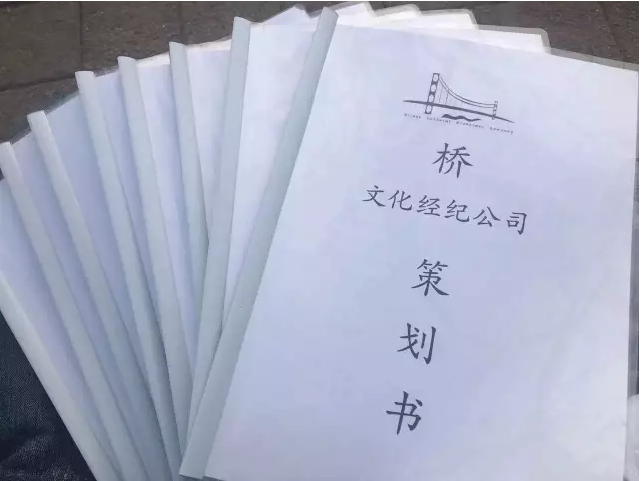 桥
文化经纪公司
策
划
书